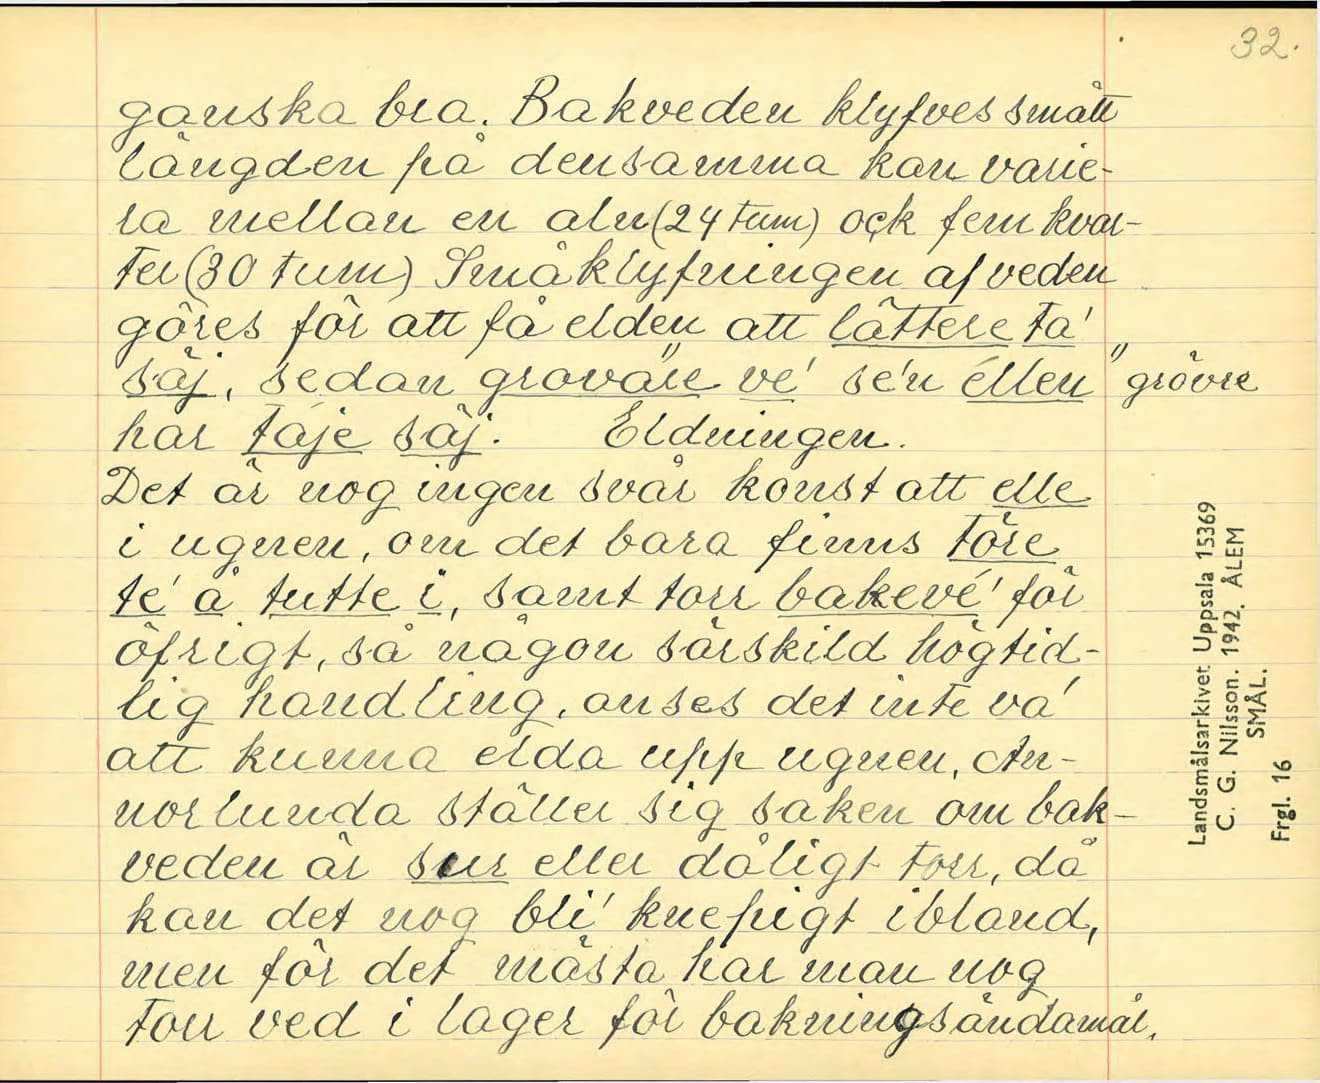 32.
ganska bra. Bakveden klyfves smått
längden på densamma kan varie-
ra mellan en aln (24 tum) ock fem kvar-
ter (30 tum) Småklyfningen af veden
göres för att få elden att lättere ta'
säj, sedan grovare ve' se'n ellen " grövre
har taje säj. Eldningen.
Det är nog ingen svår konst att elle
i ugnen, om det bara finns töre
te' å tutte i, samt torr bakevé' för
öfrigt, så någon särskild högtid-
lig handling, anses det inte va'
att kunna elda upp ugnen, An-
norlunda ställer sig saken om bak-
veden är sur eller dåligt torr, då
kan det nog bli' knepigt ibland,
men för det mästa har man nog
torr ved i lager för bakningsändamål.
Landsmålsarkivet Uppsala 15369
C. G. Nilsson. 1942. ÅLEM
SMÅL.
Frgl. 16